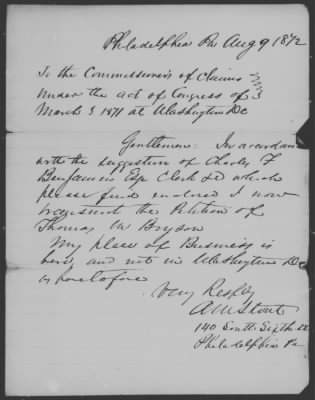 Philadelphia Pa Aug 9 1872
To the Commissioners of Claims
under the act of Congress of
March 3 1871 at Washington DC
Gentlemen: In accordance
with the suggestion of Charles F
Benjamin Esq Clerk &c which
please find enclosed I now
transmit the Petition of
Thomas W Bryson
My place of Business is
here, and not in Washington DC
as heretofore
Very Respfy
A W Stout
140 South Sixth St
Philadelphia Pa